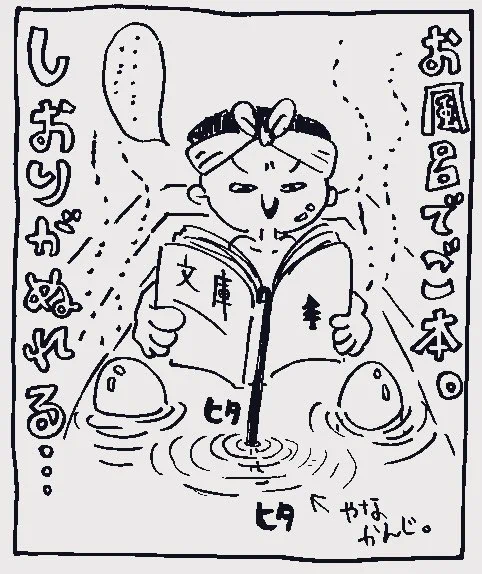 お風呂でご本。
文庫
ヒタ
ヒタ
やな
かんじ。
しおりがぬれる・・・